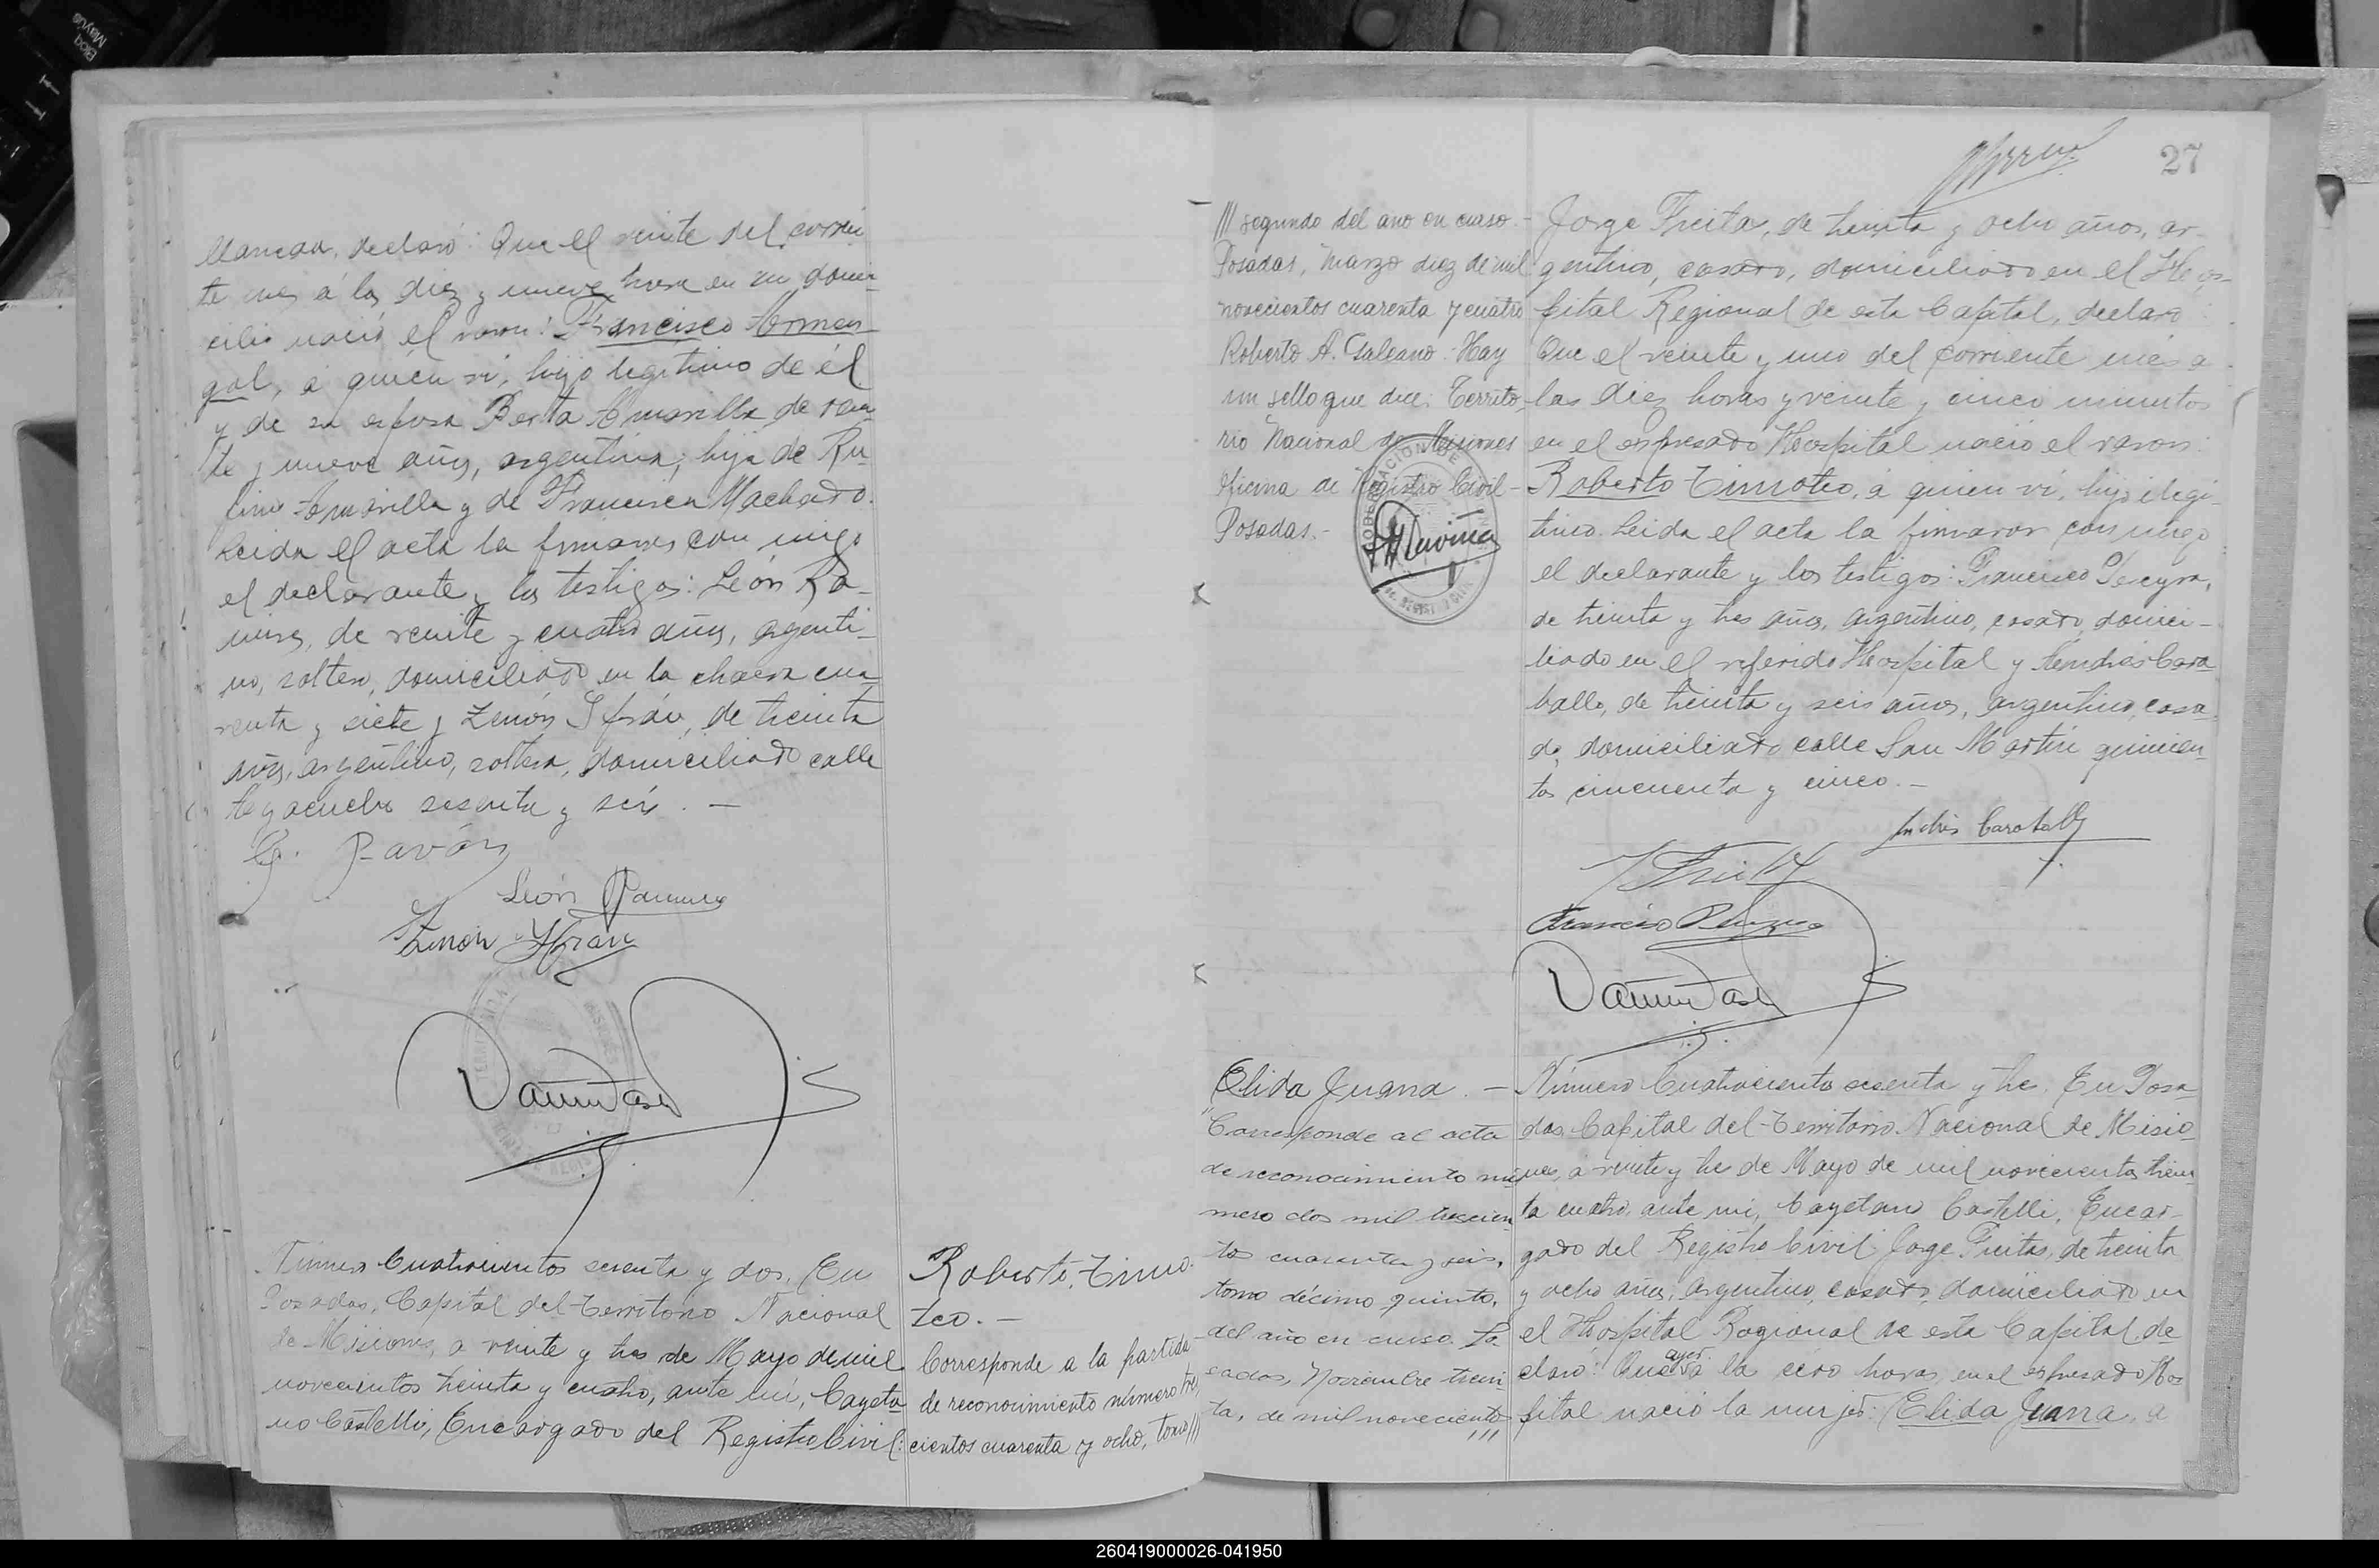 llaneda, declaró: Que el veinte del corrien
te mes á las diez y nueve horas en su domi-
cilio nació el varon: Francisco Armen
gol, á quién ví, hijo legítimo de él
y de su esposa Berta Amarilla, de vein
te y nueve años, argentina, hija de Ru
fino Amarilla y de Francisca Machado.
Leida el acta la firmaron con migo
el declarante y los testigos: León Ra-
mirez, de veinte y cuatro años, argenti-
no, soltero, domiciliado en la chacra cua
renta y siete y Zenón Ifrán, de treinta
años, argentino, soltero, domiciliado calle
Ayacucho sesenta y seis. —
G. Pavón
León Ramirez
Zenon Yfran
Número Cuatrocientos sesenta y dos. En
Posadas, Capital del Territorio Nacional
de Misiones, a veinte y tres de Mayo de mil
novecientos treinta y cuatro, ante mí, Cayeta
no Castelli, Encargado del Registro Civil:
Roberto Timo-
teo. —
Corresponde a la partida
de reconocimiento número tres
cientos cuarenta y ocho, tomo///
27
/// segundo del año en curso. -
Posadas, Marzo diez de mil
novecientos cuarenta y cuatro
Roberto A. Galeano. Hay
un sello que dice: Territo-
rio Nacional de Misiones
Oficina de Registro Civil -
Posadas. -
Jorge Freita, de treinta y ocho años, ar-
gentino, casado, domiciliado en el Hos-
pital Regional de esta Capital, declaró:
Que el veinte y uno del corriente mes a
las diez horas y veinte y cinco minutos
en el expresado Hospital nació el varon:
Roberto Timoteo, á quien ví, hijo ilegí-
timo. Leida el acta la firmaron con migo
el declarante y los testigos: Francisco Pereyra,
de treinta y tres años, argentino, casado, domici-
liado en el referido Hospital y Andres Cara
ballo, de treinta y seis años, argentino, casa
do, domiciliado calle San Martín quinien
tos cincuenta y cinco. —
Andrés Caraballo
J Freita
Francisco Pereyra
Elida Juana. —
"Corresponde al acta
de reconocimiento nú
mero dos mil trescien
tos cuarenta y seis,
tomo décimo quinto,
del año en curso. Po-
sadas, Noviembre trein-
ta, de mil novecientos
///
Número Cuatrocientos sesenta y tres. En Posa
das, Capital del Territorio Nacional de Misio
nes, a veinte y tres de Mayo de mil novecientos trein
ta cuatro, ante mí, Cayetano Castelli, Encar-
gado del Registro Civil, Jorge Freitas, de treinta
y ocho años, argentino, casado, domiciliado en
el Hospital Regional de esta Capital, de
claró: Que ayer a la cero horas, en el expresado Hos
pital nació la mujer: Elida Juana, a
260419000026-041950